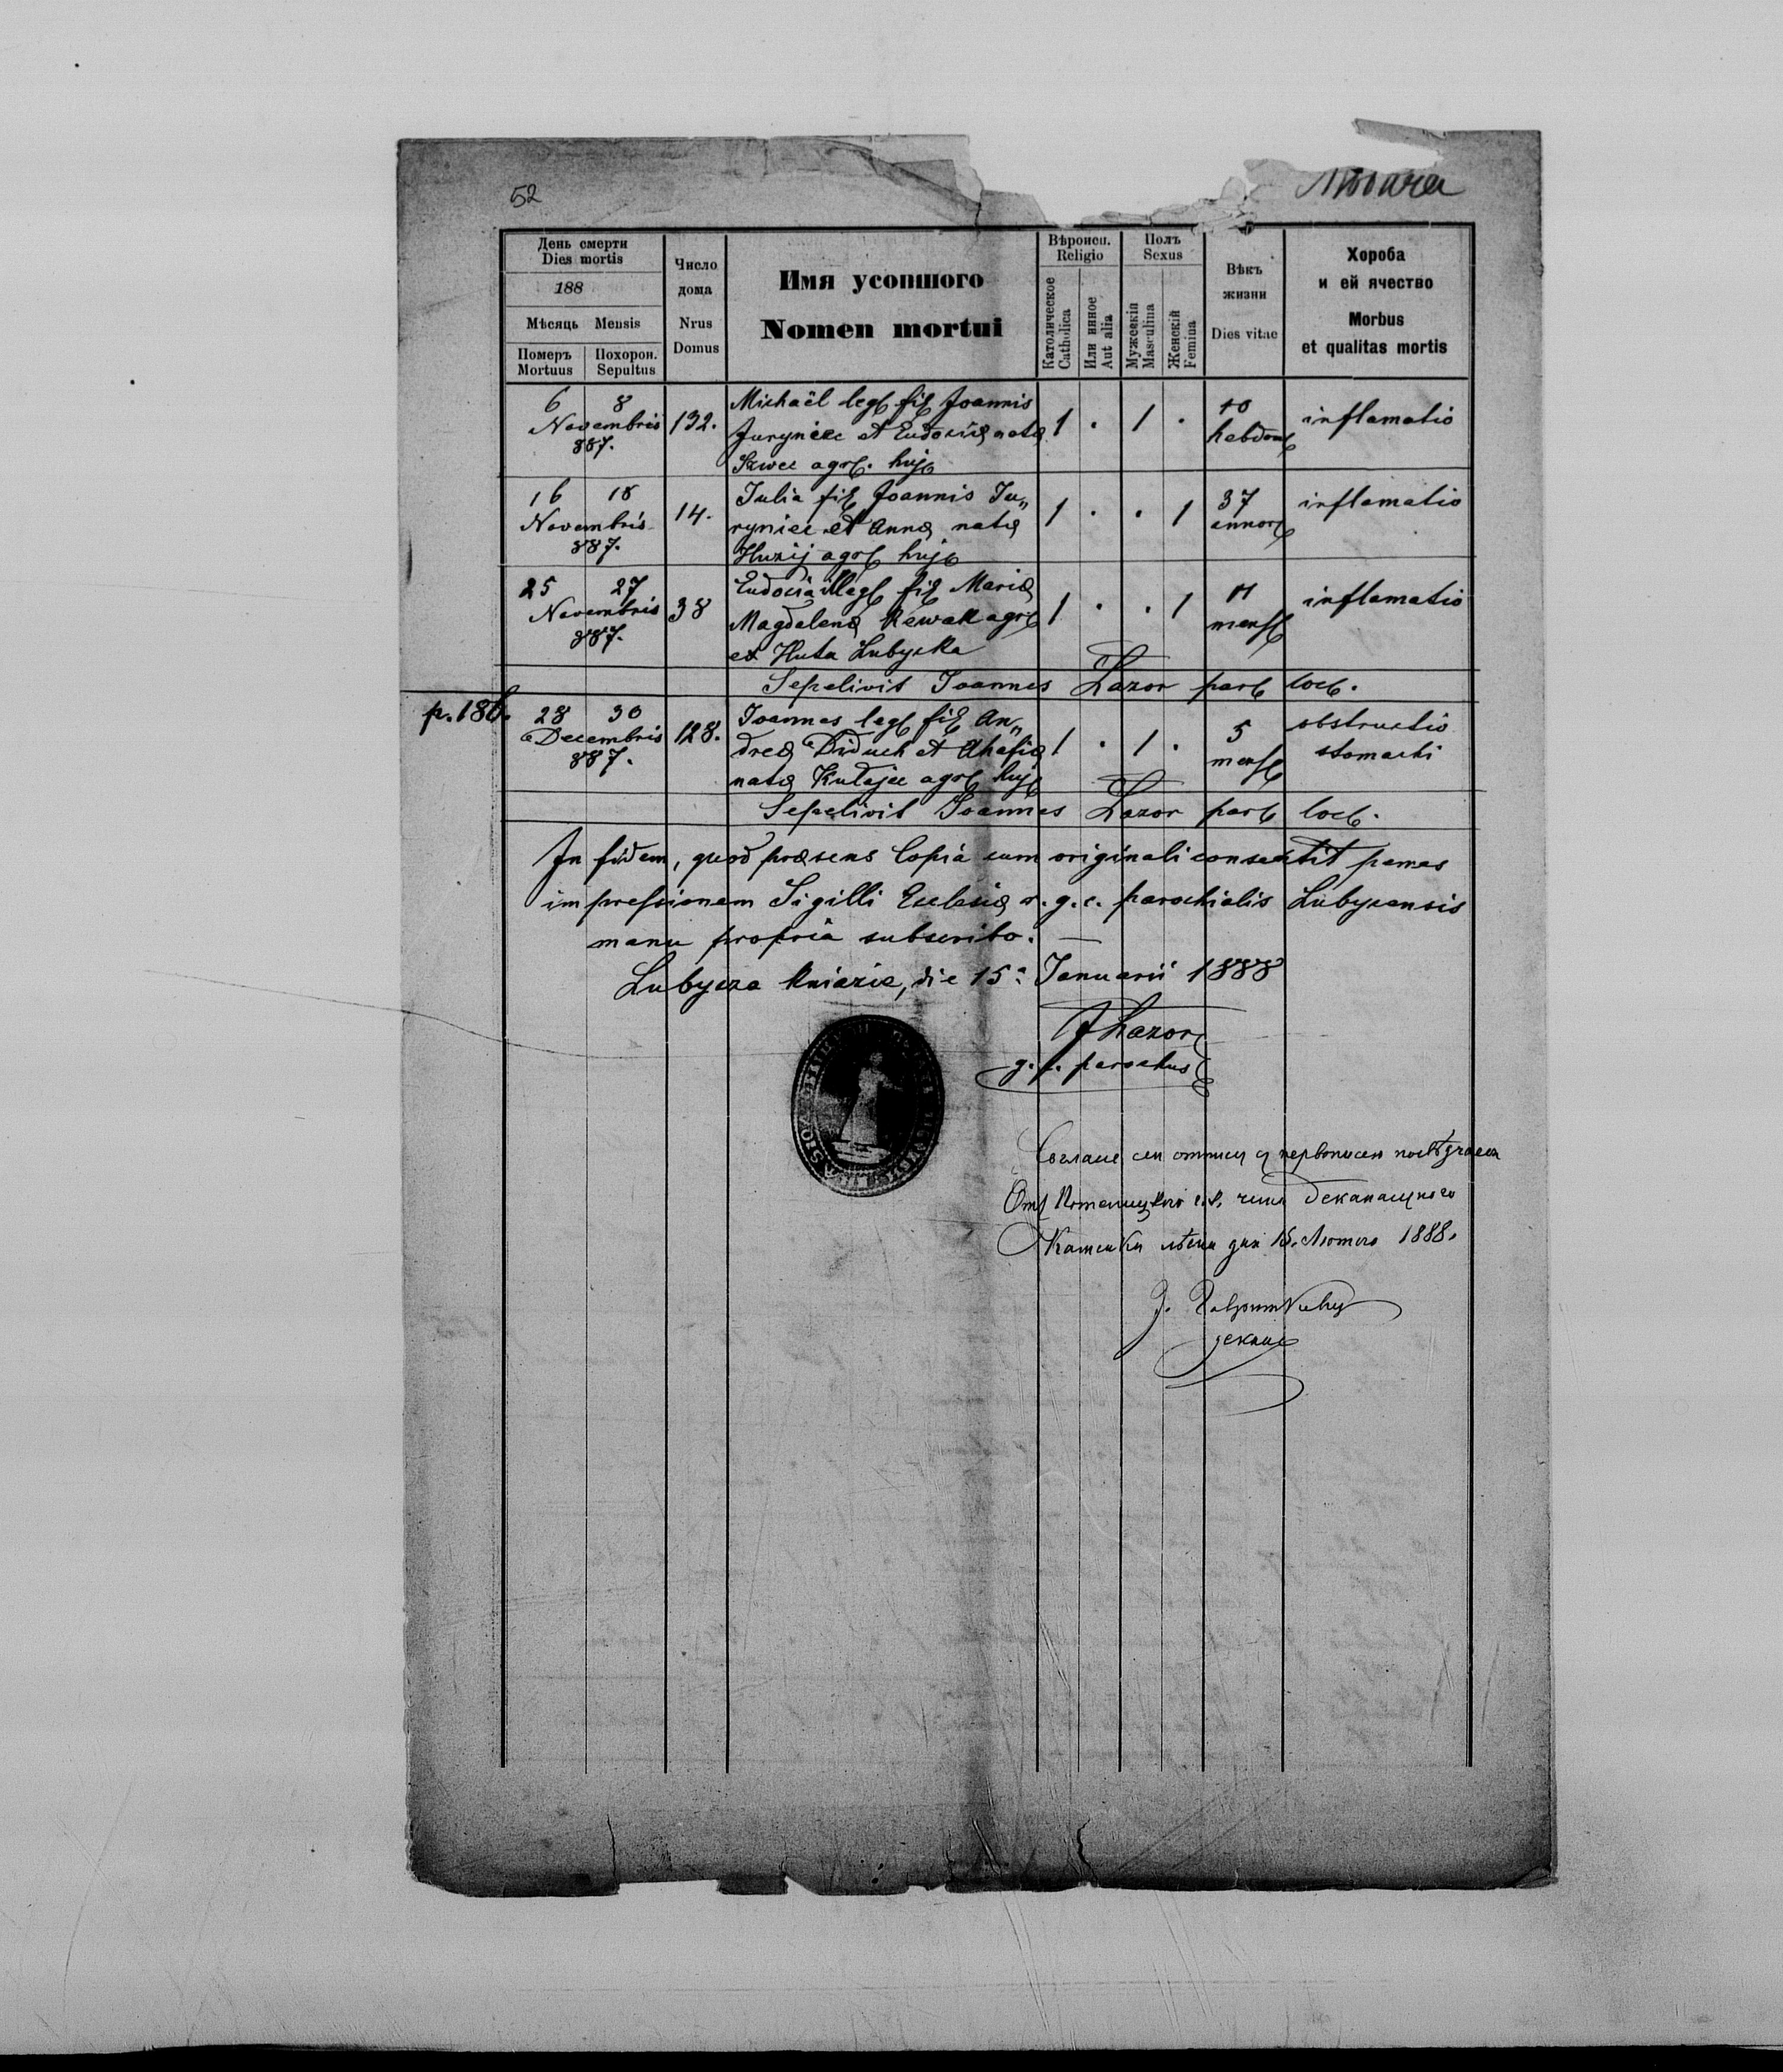 52
День смерти
Dies mortis
188
Мѣсяць Mensis
Померъ Похорон.
Mortuus Sepultus
Число
дома
Nrus
Domus
Имя усопшого
Nomen mortui
Вѣроисп.
Religio
Католическое
Catholica
Или инное
Aut alia
Полъ
Sexus
Мужескій
Masculina
Женскій
Femina
Вѣкъ
жизни
Dies vitae
Хороба
и ей ячество
Morbus
et qualitas mortis
6 8
Novembris
887.
132.
Michaël leg. fil. Joannis
Juryniec et Eudociæ natæ
Szwec agr. huj.
1 . 1 .
10
hebdom.
inflamatio
16 18
Novembris
887.
14.
Julia fil. Joannis Ju„
ryniec et Annæ natæ
Huzij agr. huj.
1 . . 1
37
annor.
inflamatio
25 27
Novembris
887.
38
Eudocia illeg. fil. Mariæ
Magdalenæ Kewak agr.
ex Huta Lubycka
1 . . 1
11
mens.
inflamatio
Sepelivit Joannes Łazor par. loc.
p. 186.
28 30
Decembris
887.
128.
Joannes leg. fil. An„
dreæ Diduch et Ahafiæ
natæ Kudajec agr. huj.
1 . 1 .
5
mens.
obstructio
stomachi
Sepelivit Joannes Łazor par. loc.
In fidem, quod præsens Copia cum originali consentit penes
impressionem Sigilli Eclesiæ r. g. c. parochialis Lubycensis
manu propria subscribo. —
Lubycza kniazie, die 15ª Januarii 1888
J Łazor
g. c. parochus
деканального
Каменка дня 15. Лютого 1888.
декан